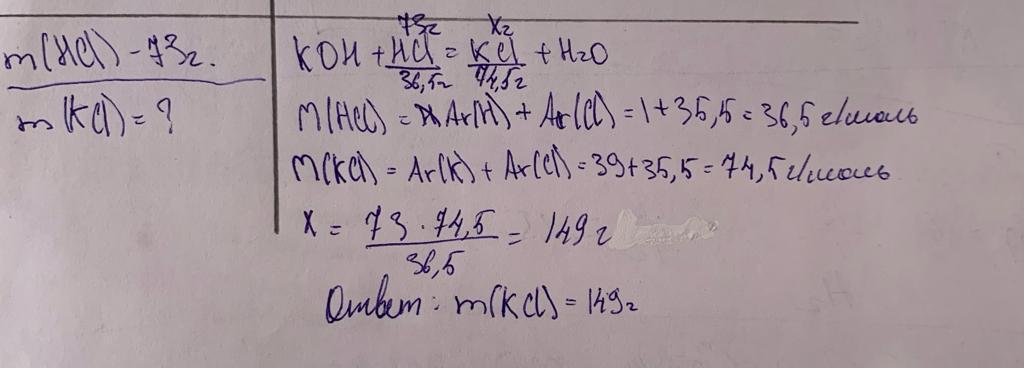 m(HCl) - 73г.
m(KCl) = ?
73г xг
KOH + HCl = KCl + H2O
36,5г 74,5г
M(HCl) = Ar(H) + Ar(Cl) = 1 + 35,5 = 36,5 г/моль
M(KCl) = Ar(K) + Ar(Cl) = 39 + 35,5 = 74,5 г/моль
x = 73 · 74,5 / 36,5 = 149 г
Ответ: m(KCl) = 149г